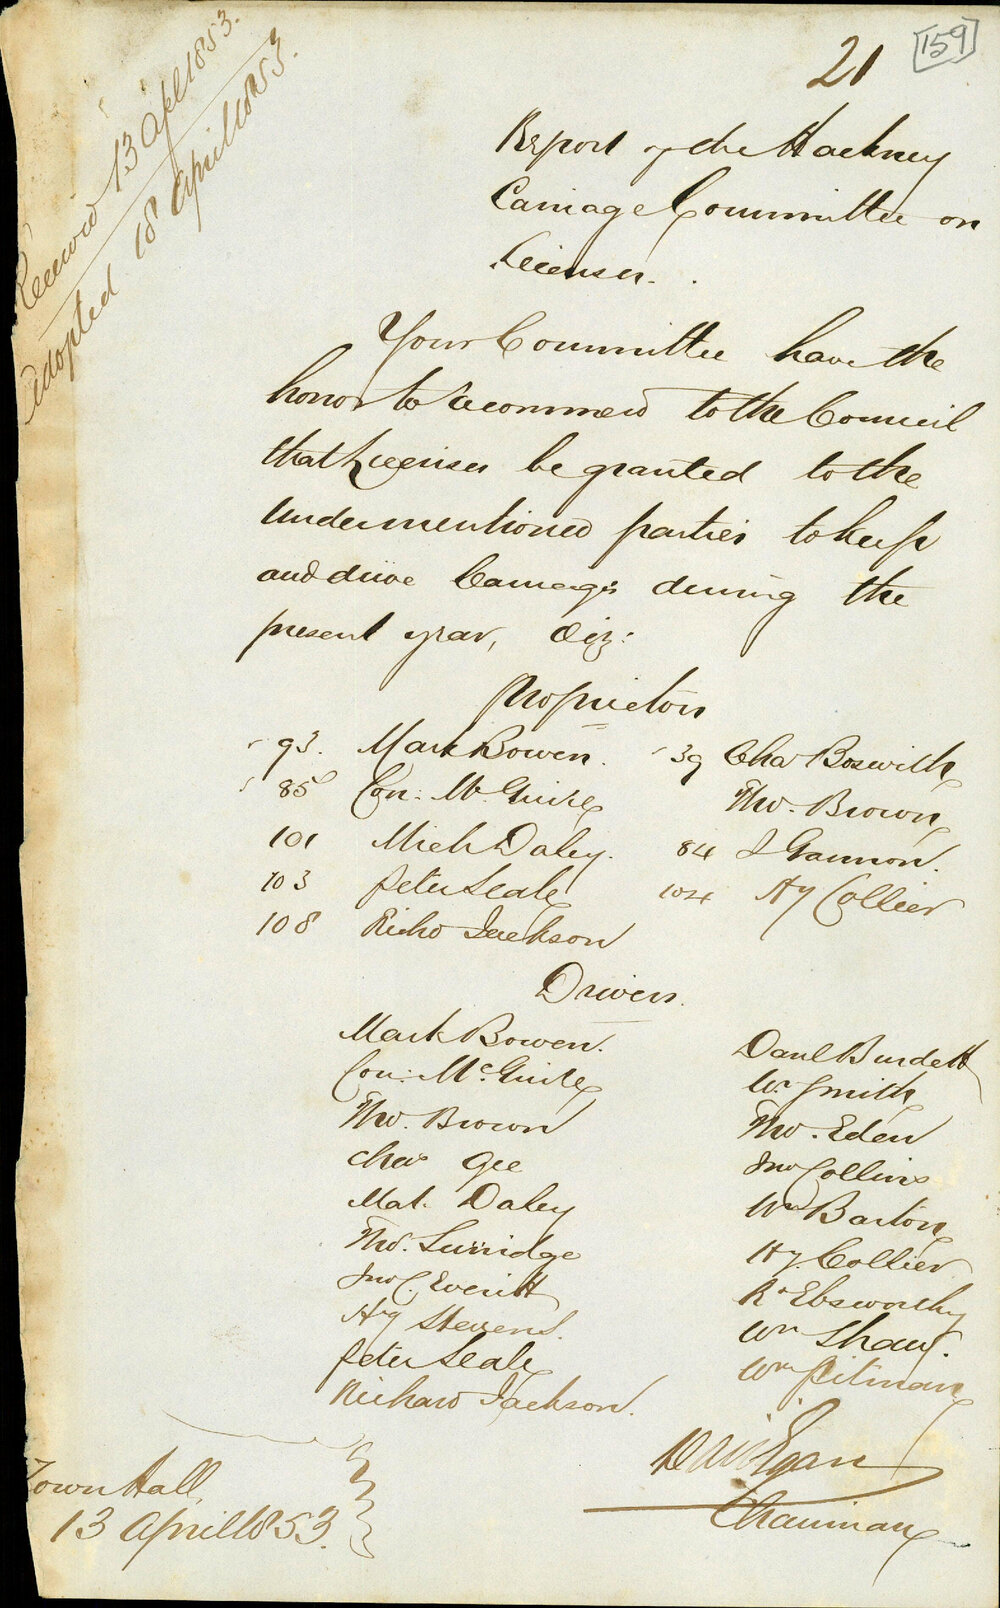 Received 13 April 1853.
Adopted 18 April 1853.
21
[159]
Report of the Hackney
Carriage Committee on
Licenses.
Your Committee have the
honor to recommend to the Council
that Licenses be granted to the
undermentioned parties to keep
and drive Carriages during the
present year, Viz:
Proprietors
93. Mark Bowen. 39 Chas Boswith
85 Con: McGuire Tho. Brown
101 Mich Daley. 84 J Gannon.
103 Peter Seale 104 Hy Collier
108 Richd Jackson
Drivers.
Mark Bowen. Danl Burdett
Con: McGuire Wm Smith
Tho. Brown Tho. Eden
Chas Gee Jno Collins
Mat. Daley Wm Barton
Tho. Surridge Hy. Collier
Jno C. Everitt Rd Ebsworthy
Hy Stevens. Wm Shaw.
Peter Seale Wm Pitman
Richard Jackson.
Danl Egan
Chairman
Town Hall,
13 April 1853.